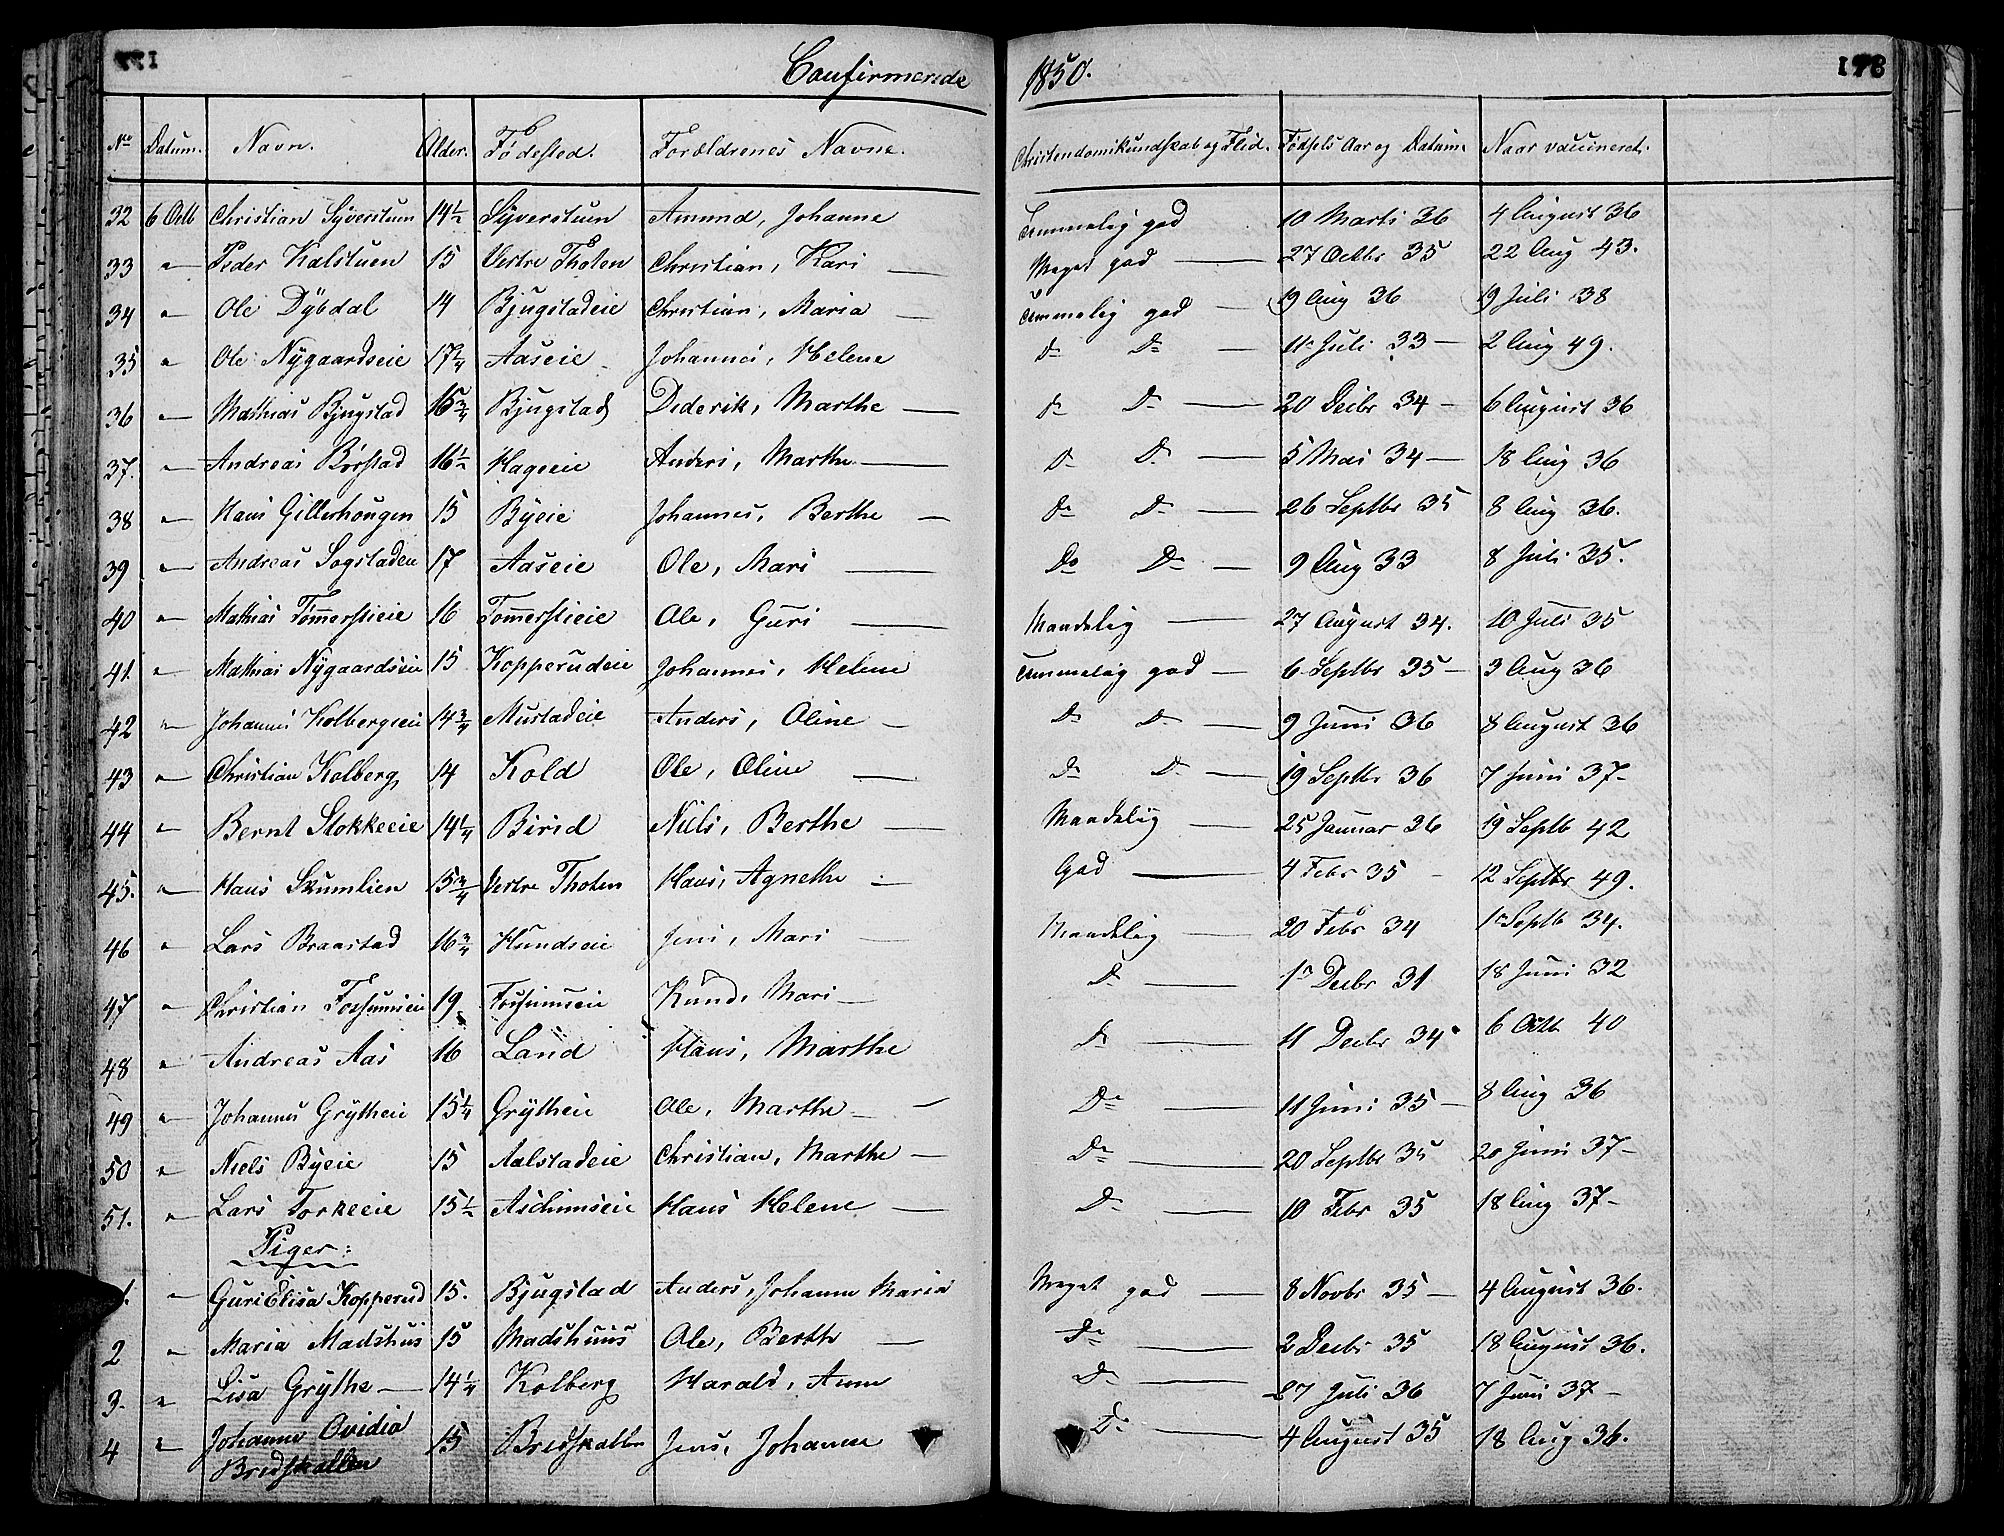 177
Confirmerede 1850. 178
No Datum. Navn. Alder. Fødested. Forældrenes Navne. Christendomskundskab og Flid. Fødsels Aar og Datum. Naar vaccineret.
32 6 Octb Christian Syverstuen 14½ Syverstuen Amund, Johanne Temmelig god 10 Marts 36 4 August 36
33 " Peder Kalstuen 15 Vestre Thoten Christian, Kari — Meget god — 27 Octbr 35 22 Aug 43.
34 " Ole Dybdal 14 Bjugstadeie Christian, Maria — Temmelig god — 19 Aug 36 19 Juli 38
35 " Ole Nygaardseie 17¼ Aaseie Johannes, Helene Do Do — 11 Juli 33 — 2 Aug 49.
36 " Mathias Bjugstad 15¾ Bjugstad Diderik, Marthe — Do Do — 20 Decbr 34 — 6 August 36
37. " Andreas Børstad 16½ Hageeie Anders, Marthe — Do Do — 5 Mai 34 — 18 Aug 36
38 " Hans Gillerhougen 15 Byeie Johannes, Berthe — Do Do — 26 Septbr 35 8 Aug 36.
39 " Andreas Sogstadeie 17 Aaseie Ole, Mari — Do Do — 9 Aug 33 8 Juli 35.
40 " Mathias Tømmerstieie 16 Tommerstieie Ole, Guri — Maadelig — 27 August 34. 10 Juli 35
41. " Mathias Nygaardseie 15 Kopperudeie Johannes, Helene Temmelig god — 6 Septbr 35 — 3 Aug 36
42 " Johannes Kolbergseie 14¾ Mustadeie Anders, Oline — Do Do — 9 Juni 36 8 August 36
43 " Christian Kolberg 14 Kold Ole, Oline — Do Do — 19 Septbr 36 7 Juni 37 -
44 " Bernt Stokkeeie 14¼ Birid Niels, Berthe — Maadelig — 25 Januar 36 19 Septb 42
45. " Hans Skumlien 15¾ Vestre Thoten Hans, Agnethe — God — 4 Febr 35 - 12 Septbr 49.
46 " Lars Braastad 16¾ Hundseie Jens, Mari — Maadelig — 20 Febr 34 1 Septb 34.
47 " Christian Fossumseie 19 Fossumseie Knud, Mari — Do — 1 Decbr 31 18 Juni 32
48 " Andreas Aas 16 Land Hans, Marthe Do — 11 Decbr 34 6 Octb 40
49 " Johannes Grytheie 15¼ Grytheie Ole, Marthe — Do — 11 Juni 35 — 8 Aug 36
50 " Niels Byeie 15 Aalstadeie Christian, Marthe — Do — 20 Septbr 35 20 Juni 37 -
51. " Lars Torkeeie 15½ Aschimseie Hans Helene — Do — 10 Febr 35 18 Aug 37 -
Piger:
1. " Guri Elisa Kopperud 15. Bjugstad Anders, Johanne Maria Meget god — 8 Novbr 35 — 4 August 36.
2 " Maria Madshus 15 Madshuus Ole, Berthe — Do — 2 Decbr 35 18 August 36.
3. " Lisa Grythe — 14¼ Kolberg Harald, Anne Do — 27 Juli 36 7 Juni 37 -
4 " Johanne Ovidia 15 Bredskallen Jens, Johanne Do — 4 August 35 18 Aug 36.
Bredskallen